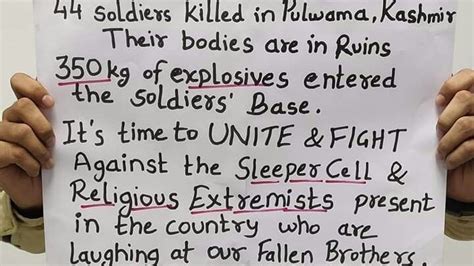 44 Soldiers killed in Pulwama, Kashmir
Their bodies are in Ruins
350kg of explosives entered
the Soldiers' Base.
It's time to UNITE & FIGHT
Against the Sleeper Cell &
Religious Extremists present
in the country who are
laughing at our Fallen Brothers.